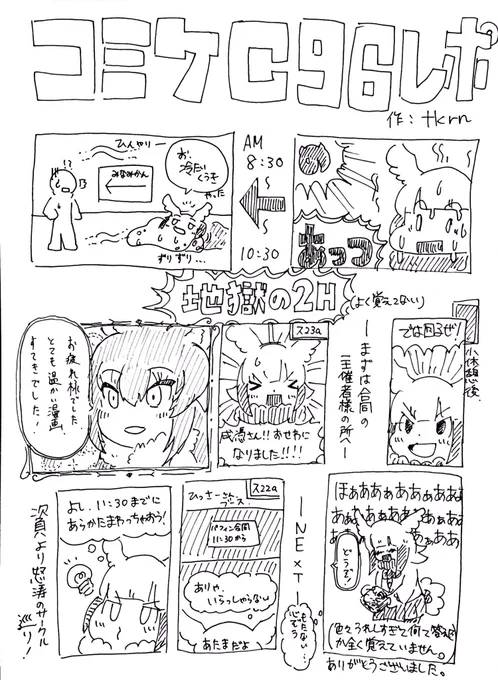 コミケC96レポ
作：tkrn
あっつ
AM
8:30
10:30
お、
冷たい
くうき
やった
ひんやりー
みなみかん
!?
ずりずり…
地獄の2H
(よく覚えてない)
小休憩後、
では回るぜ!
ーまずは合同の
主催者様の所へー
ス23a
成湯さん!!おせわに
なりました!!!!
お疲れ様でした
とても温かい漫画
すてきでした!
ほぁああぁあぁあぁああ
あぁ
どうぞ
(色々うれしすぎて何て答えた
か全く覚えていません。
ありがとうございました。
ーNExTー
ス22a
パフィン合同
11:30から
ありゃ、
いらっしゃらない
あたまだよ
よし、11:30までに
あらかたまわっちゃおう!
次頁より怒涛のサークル
巡り!